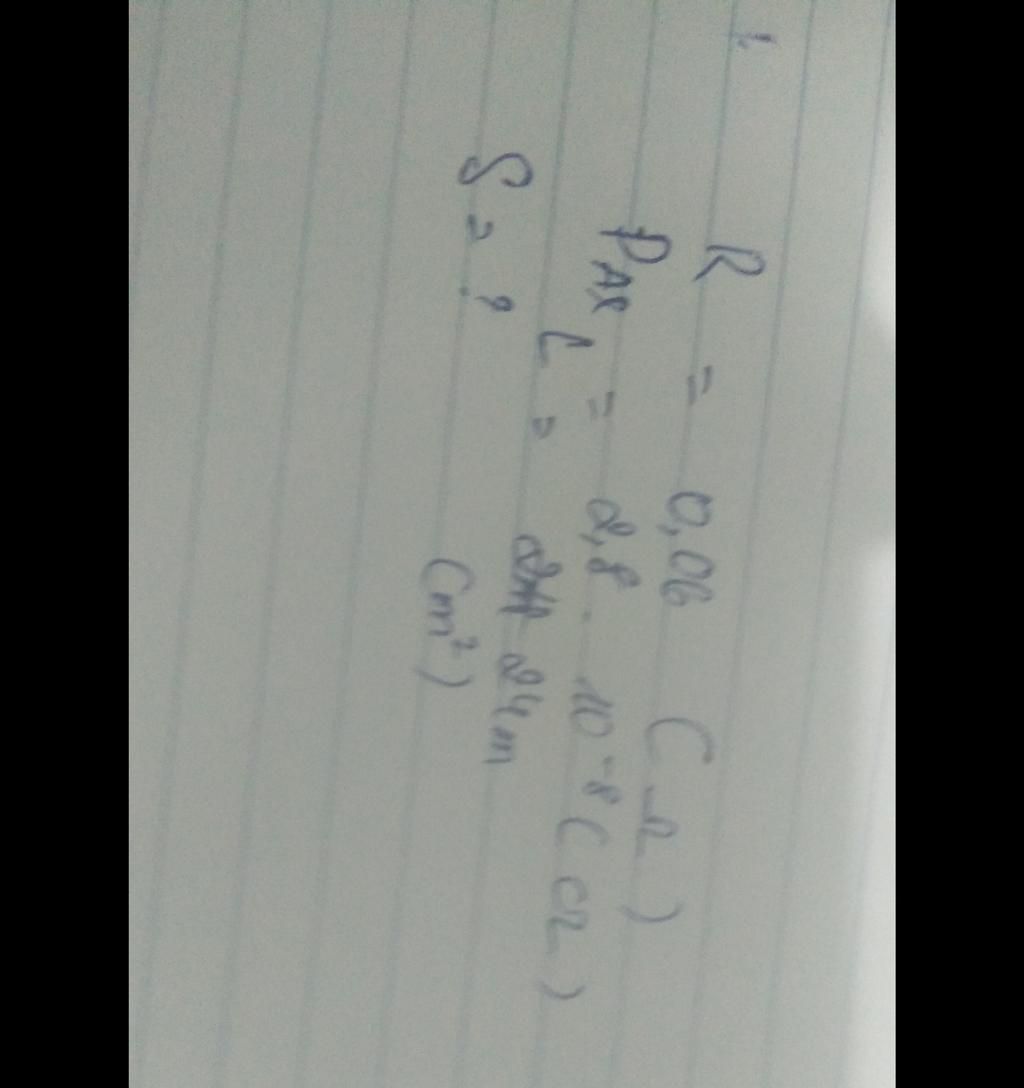 1.
R = 0,06 (Ω)
ρAl = 2,8 . 10⁻⁸ (Ω)
L = 24m
S = ? (m²)